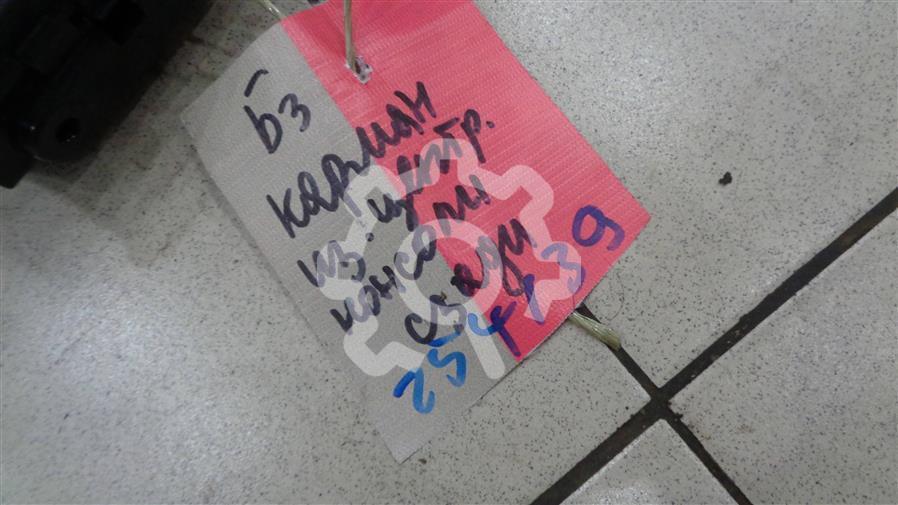 Б3
карман
из центр.
консоли
сзади
254139